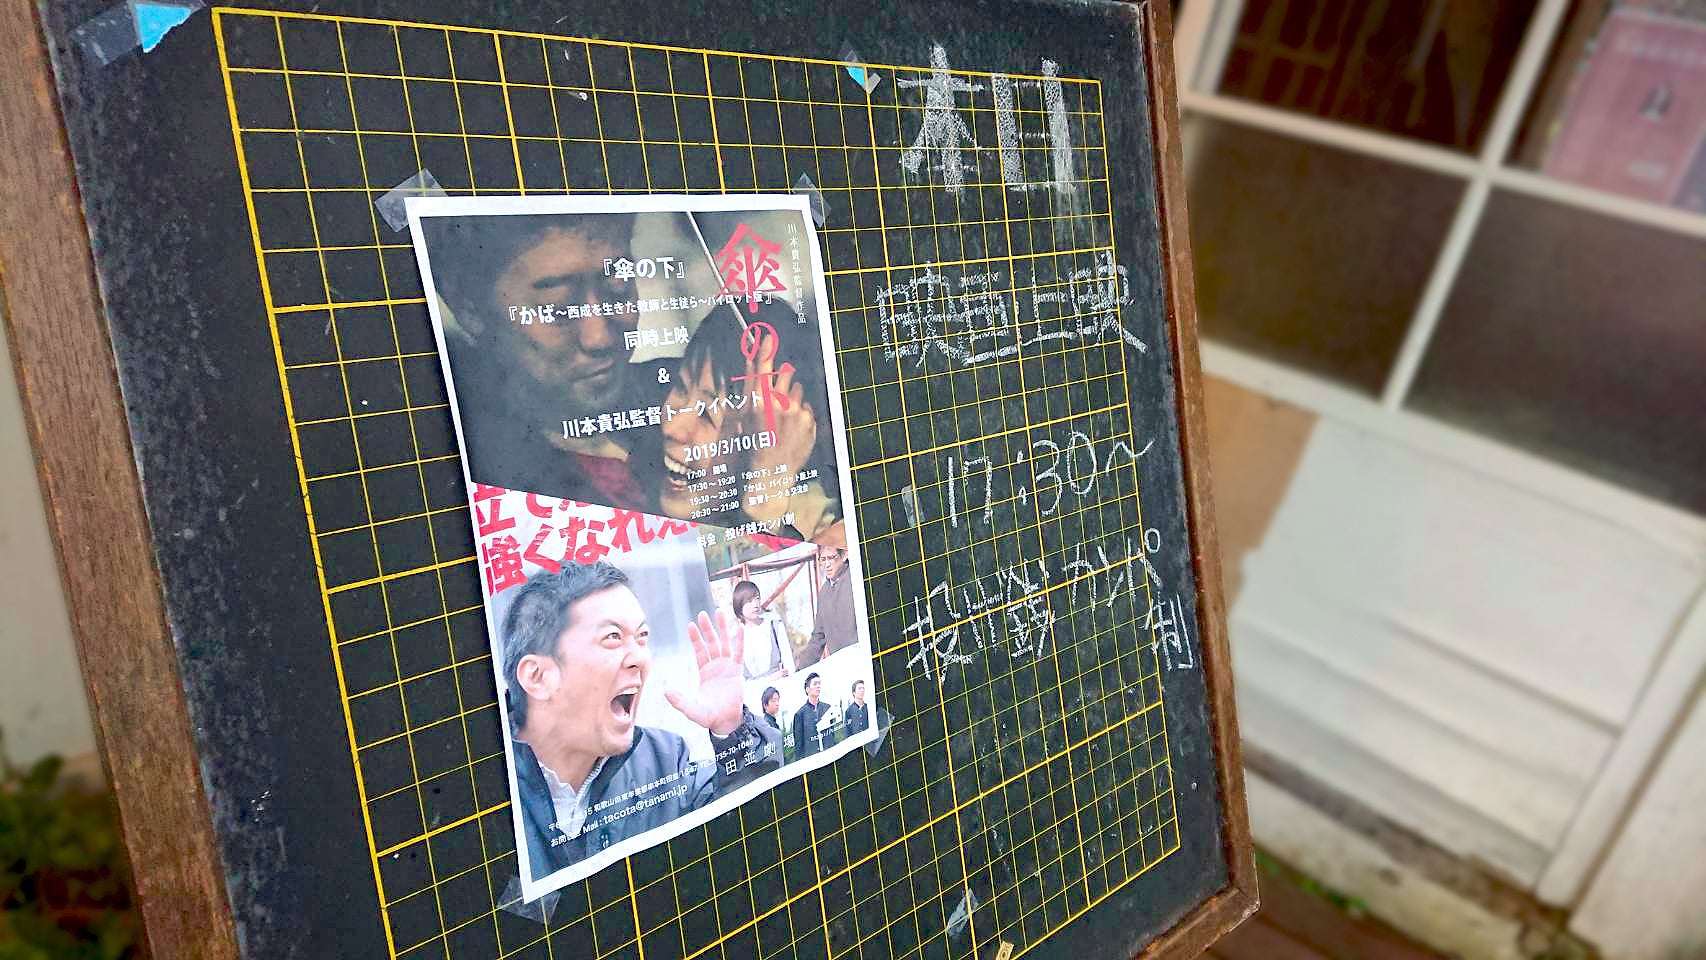 『傘の下』
『かば～西成を生きた教師と生徒ら～パイロット版』
同時上映
&
川本貴弘監督トークイベント
2019/3/10(日)
17:00 開場
17:30～19:20 『傘の下』上映
19:30～20:30 『かば』パイロット版上映
20:30～21:00 監督トーク&交流会
料金 投げ銭カンパ制
傘の下
川本貴弘監督作品
強くなれ
田並劇場
お問 Mail:tacota@tanami.jp
本日
映画上映
17:30～
投げ銭カンパ制